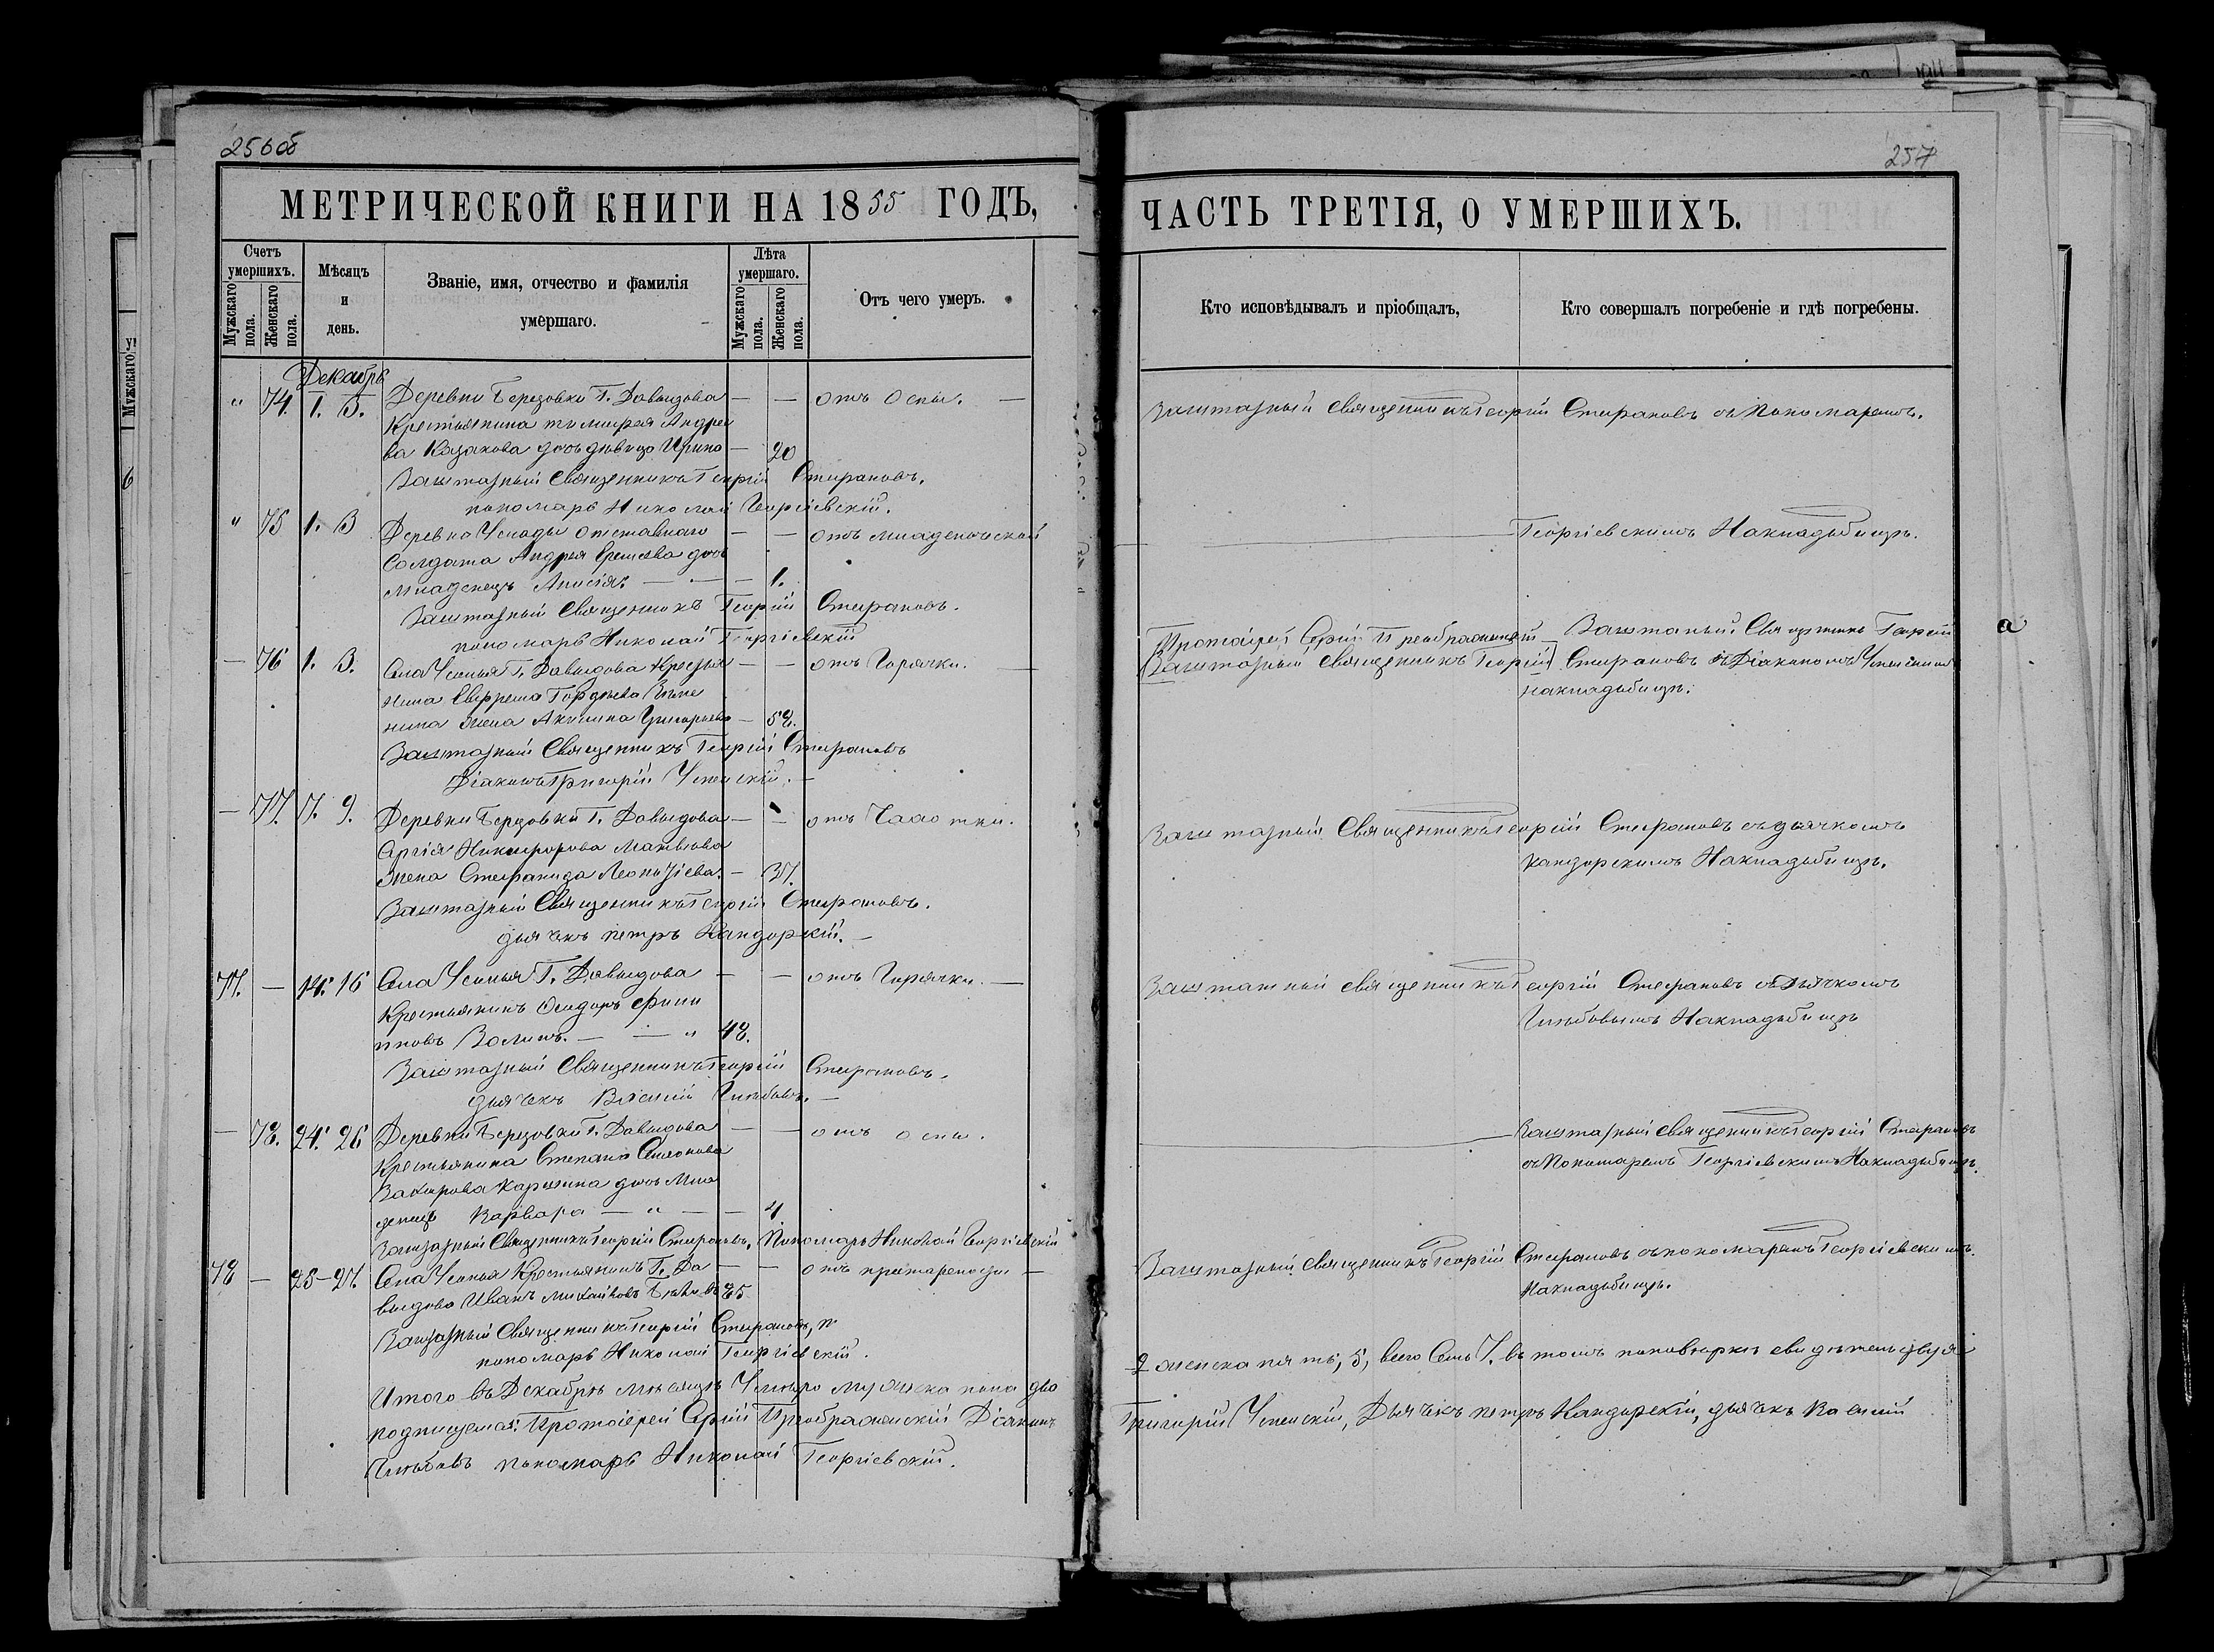 256об
МЕТРИЧЕСКОЙ КНИГИ НА 1855 ГОДЪ,
Счетъ умершихъ.
Мужскаго пола.
Женскаго пола.
Мѣсяцъ и день.
Званіе, имя, отчество и фамилія умершаго.
Лѣта умершаго.
Мужскаго пола.
Женскаго пола.
Отъ чего умеръ.
Декабрь
" 74. 1. 3. Деревни Березовки Г. Давыдова — — отъ оспы. —
Крестьянина Тимофея Андрее
ва Казакова дочь девица Ирина — 20
Заштатный Священникъ Георгій Стефановъ.
пономарь Николай Георгіевскій.
" 75 1. 3 Деревни отставнаго — — отъ младенческой
Солдата Андрея дочь
младенецъ Анисія. — — — 1.
Заштатный Священникъ Георгій Стефановъ.
пономарь Николай Георгіевскій
— 76 1. 3. Села Усолья Г. Давыдова Кресть — — отъ Горячки. —
нина Евфрема Гордѣева
нина жена Акилина Григорьева — 58.
Заштатный Священникъ Георгій Стефановъ
Діаконъ Григорій Успенскій. —
— 77. 7. 9. Деревни Березовки Г. Давыдова — — отъ Чаотки.
Сергія Никифорова Матвѣева
жена Стефанида Леонтіева. — 37.
Заштатный Священникъ Георгій Стефановъ.
дьячекъ петръ Кандорскій. —
77. — 14. 16 Села Усолья Г. Давыдова — — отъ Горячки. —
Крестьянинъ Сидоръ Фили
пповъ Золинъ. — — " 48.
Заштатный Священникъ Георгій Стефановъ.
дьячекъ Василій Глѣбовъ. —
— 78. 24. 26 Деревни Березовки Г. Давыдова — — отъ оспы.
Крестьянина Степана Семенова
дочь Мла
денецъ Варвара — " — — 4.
Заштатный Священникъ Георгій Стефановъ, Пономарь Николай Георгіевскій
78 — 25-27. Села Усолья Крестьянинъ Г. Да — — отъ престарелости —
выдова Иванъ Михайловъ 85
Заштатный Священникъ Георгій Стефановъ, п
пономарь Николай Георгіевскій.
Итого въ Декабрѣ мѣсяцѣ Умерло мужска пола два
подписуемся: Протоіерей Сергій Преображенскій Діаконъ
Глѣбовъ пономарь Николай Георгіевскій.
257
ЧАСТЬ ТРЕТІЯ, О УМЕРШИХЪ.
Кто исповѣдывалъ и пріобщалъ,
Кто совершалъ погребеніе и гдѣ погребены.
Заштатный Священникъ Георгій Стефановъ съ Пономаремъ.
Георгіевскимъ На кладбищѣ.
Протоіерей Сергій Преображенскій — Заштатный Священникъ Георгій
(Заштатный Священникъ Георгій) Стефановъ съ Діакономъ Успенскимъ
на кладбищѣ.
Заштатный Священникъ Георгій Стефановъ съ дьячкомъ
Кандорскимъ На кладбищѣ.
Заштатный Священникъ Георгій Стефановъ съ Дьячкомъ
Глѣбовымъ На кладбищѣ
Заштатный Священникъ Георгій Стефановъ
съ Пономаремъ Георгіевскимъ На кладбищѣ.
Заштатный Священникъ Георгій Стефановъ съ пономаремъ Георгіевскимъ
На кладбищѣ.
2 женска пять, 5, всего Семь 7. въ томъ по повѣркѣ свидѣтельствуя
Григорій Успенскій, Дьячекъ петръ Кандорскій, дьячекъ Василій